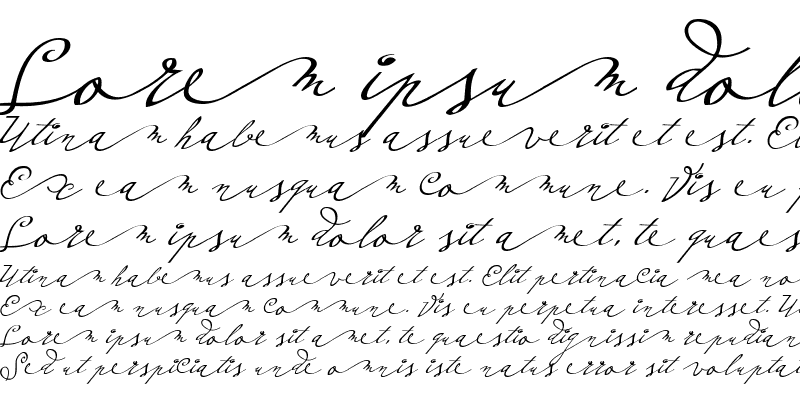 Lorem ipsum dolo
Utinam habemus assueverit et est. El
Ex eam nusquam Commune. Vis eu p
Lorem ipsum dolor sit amet, te quaes
Utinam habemus assueverit et est. Elit pertinaCia mea no
Ex eam nusquam Commune. Vis eu perpetua interesset. U
Lorem ipsum dolor sit amet, te quaestio dignissim repudian
Sed ut perspiCiatis unde omnis iste natus error sit voluptat